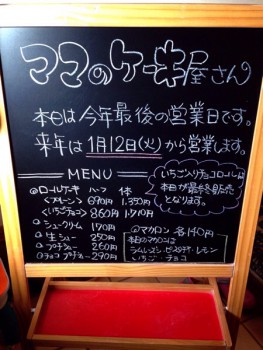 ママのケーキ屋さん
本日は今年最後の営業日です。
来年は1月12日(火)から営業します。
MENU
◎ロールケーキ ハーフ 1本
<プレーン> 690円 1,350円
<いちごチョコ> 860円 1,710円
◎シュークリーム 190円
◎生シュー 250円
◎プチシュー 260円
◎チョコプチシュー 290円
いちご入りチョコロールは
本日が最終販売
となります。
◎マカロン 各140円
本日のマカロンは
ラムレーズン・ピスタチオ・レモン
いちご・チョコ